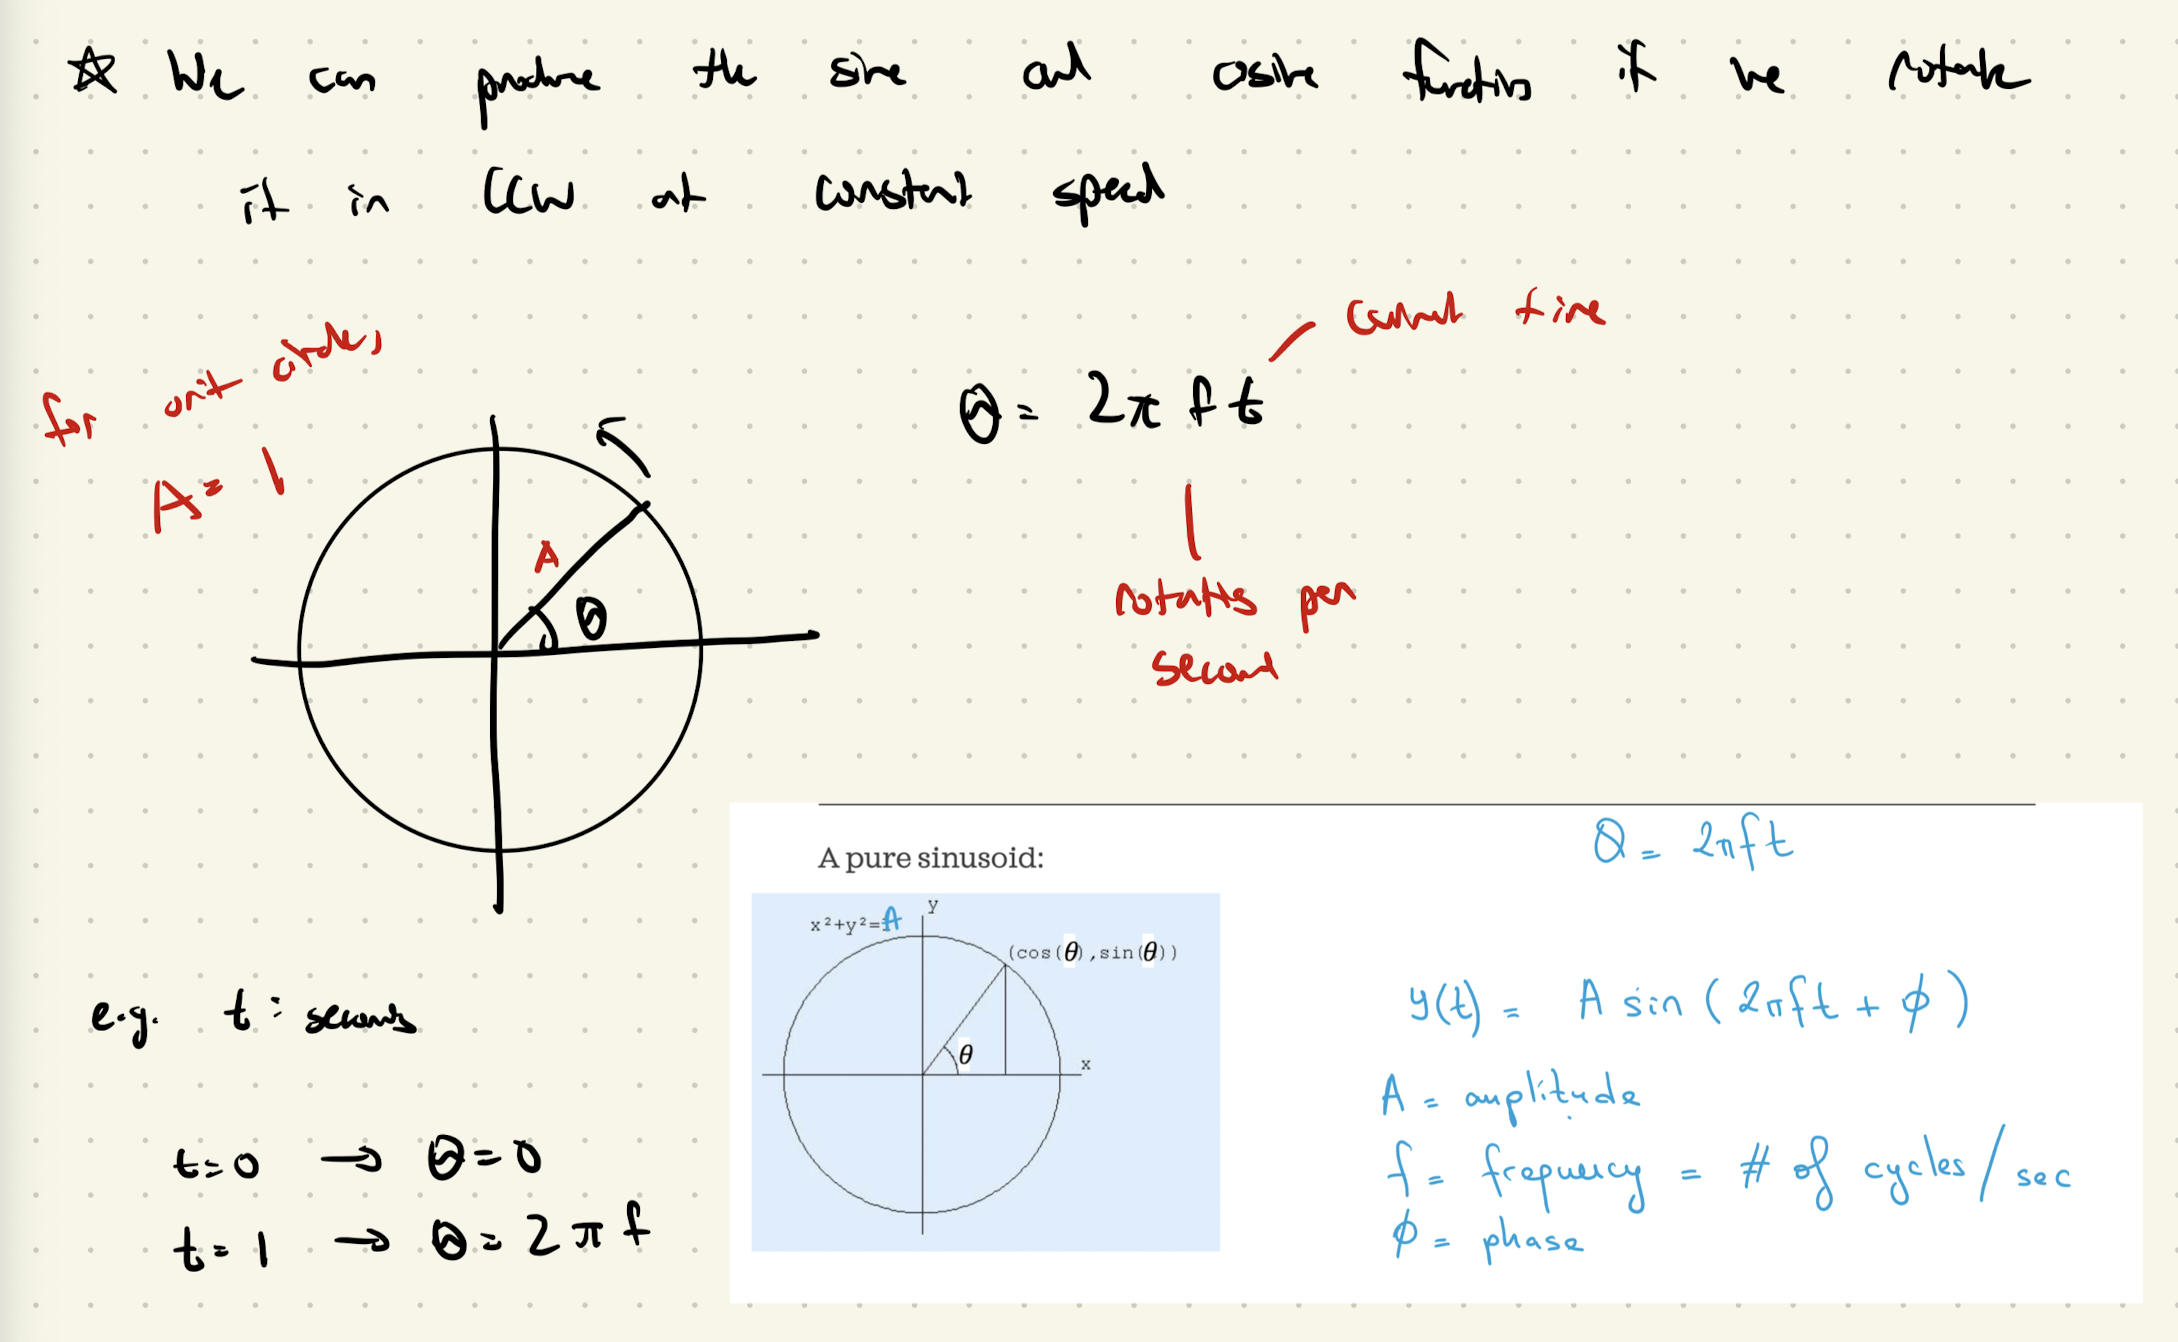 ☆ We can produce the sine and cosine functions if we rotate
it in CCW at constant speed
for unit circle,
A = 1
A
θ
θ = 2π f t
current time
rotations per
second
e.g. t : seconds
t=0 → θ=0
t=1 → θ=2πf
A pure sinusoid:
x²+y²=A
y
(cos(θ),sin(θ))
θ
x
θ = 2πft
y(t) = A sin ( 2πft + ϕ )
A = amplitude
f = frequency = # of cycles/sec
ϕ = phase